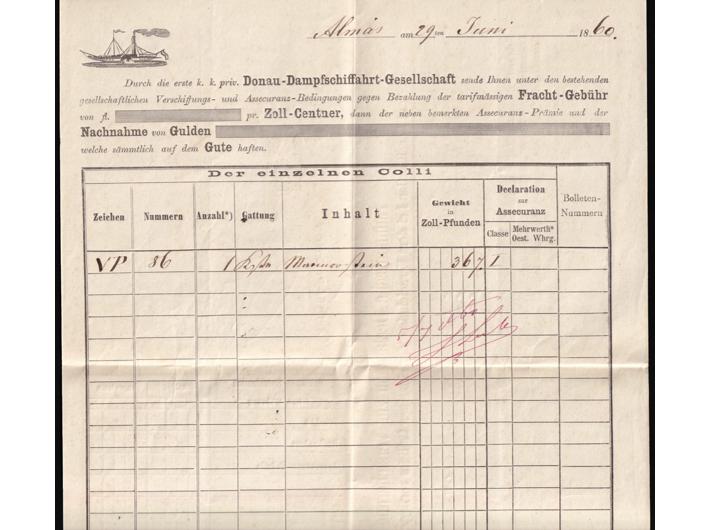 Almás am 29ten Juni 1860.
Durch die erste k. k. priv. Donau-Dampfschiffahrt-Gesellschaft sende Ihnen unter den bestehenden
gesellschaftlichen Verschiffungs- und Assecuranz-Bedingungen gegen Bezahlung der tarifmässigen Fracht-Gebühr
von fl. pr. Zoll-Centner, dann der neben bemerkten Assecuranz-Prämie und der
Nachnahme von Gulden
welche sämmtlich auf dem Gute haften.
Der einzelnen Colli
Zeichen Nummern Anzahl*) Gattung Inhalt Gewicht in Zoll-Pfunden Declaration zur Assecuranz Bolleten-Nummern
Classe Mehrwerth* Oest. Whrg.
VP 86 1 Marmorstein 367 1